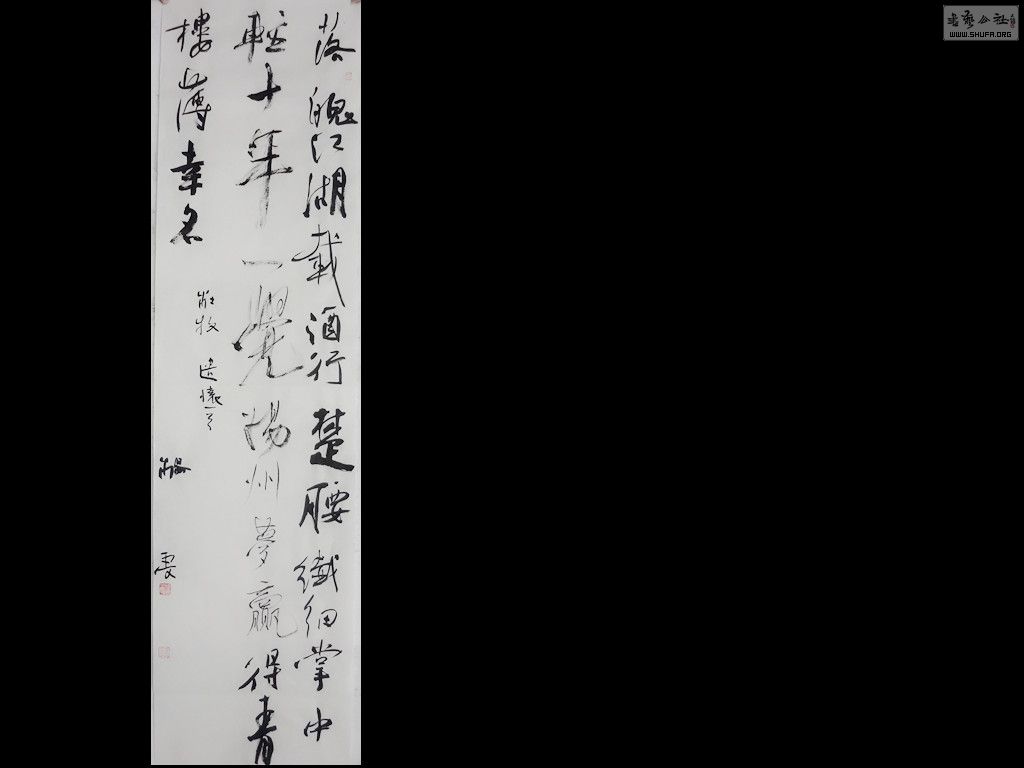 落魄江湖載酒行楚腰纖細掌中
輕十年一覺揚州夢贏得青
樓薄幸名
杜牧 遣懷一首
雯
書藝公社
WWW.SHUFA.ORG